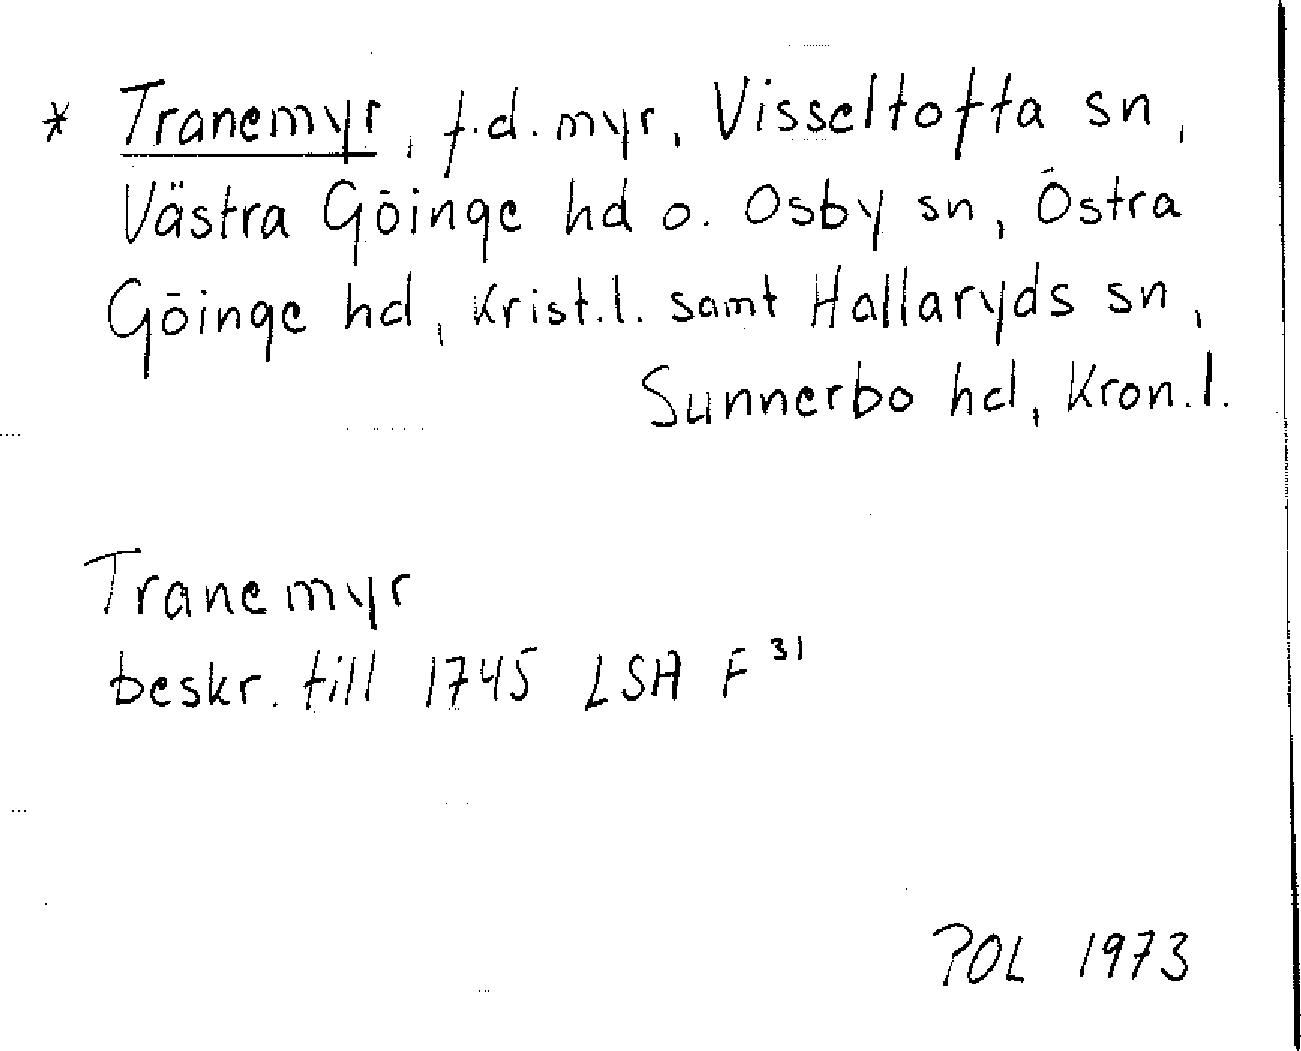 * Tranemyr, f.d. myr, Visseltofta sn,
Västra Göinge hd o. Osby sn, Östra
Göinge hd, Krist.l. samt Hallaryds sn,
Sunnerbo hd, Kron.l.
Tranemyr
beskr. till 1745 LSA F³¹
POL 1973